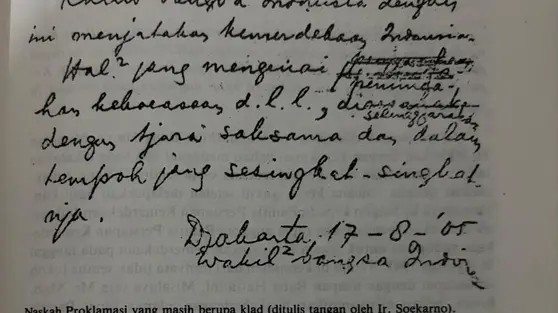 Indonesia dengan
ini menjatakan kemerdekaan Indonesia.
Hal² jang mengenai
peminda-
han kekoeasaan d.l.l.,
selenggarakan
dengan tjara saksama dan dalam
tempoh jang sesingkat-singkat-
nja.
Djakarta, 17 – 8 – '05
Wakil² bangsa Indon
Naskah Proklamasi yang masih berupa klad (ditulis tangan oleh Ir. Soekarno).